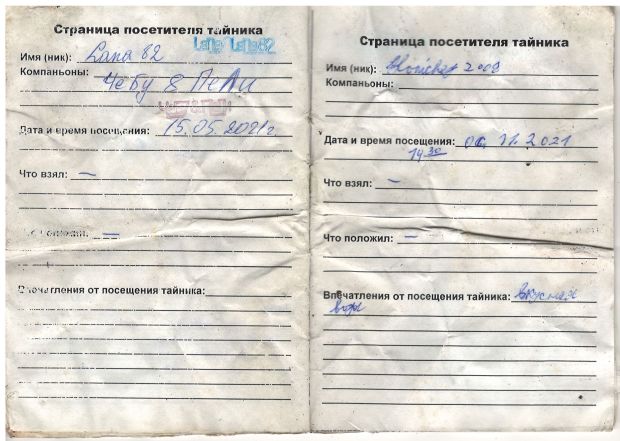 Страница посетителя тайника
Имя (ник): Lana 82
Компаньоны: Чебу &
Дата и время посещения: 15.05.2021г.
Что взял: —
—
Впечатления от посещения тайника:
Страница посетителя тайника
Имя (ник): 2009
Компаньоны:
Дата и время посещения: 06. 11. 2021
14 30
Что взял: —
Что положил: —
Впечатления от посещения тайника: вкусная
вода